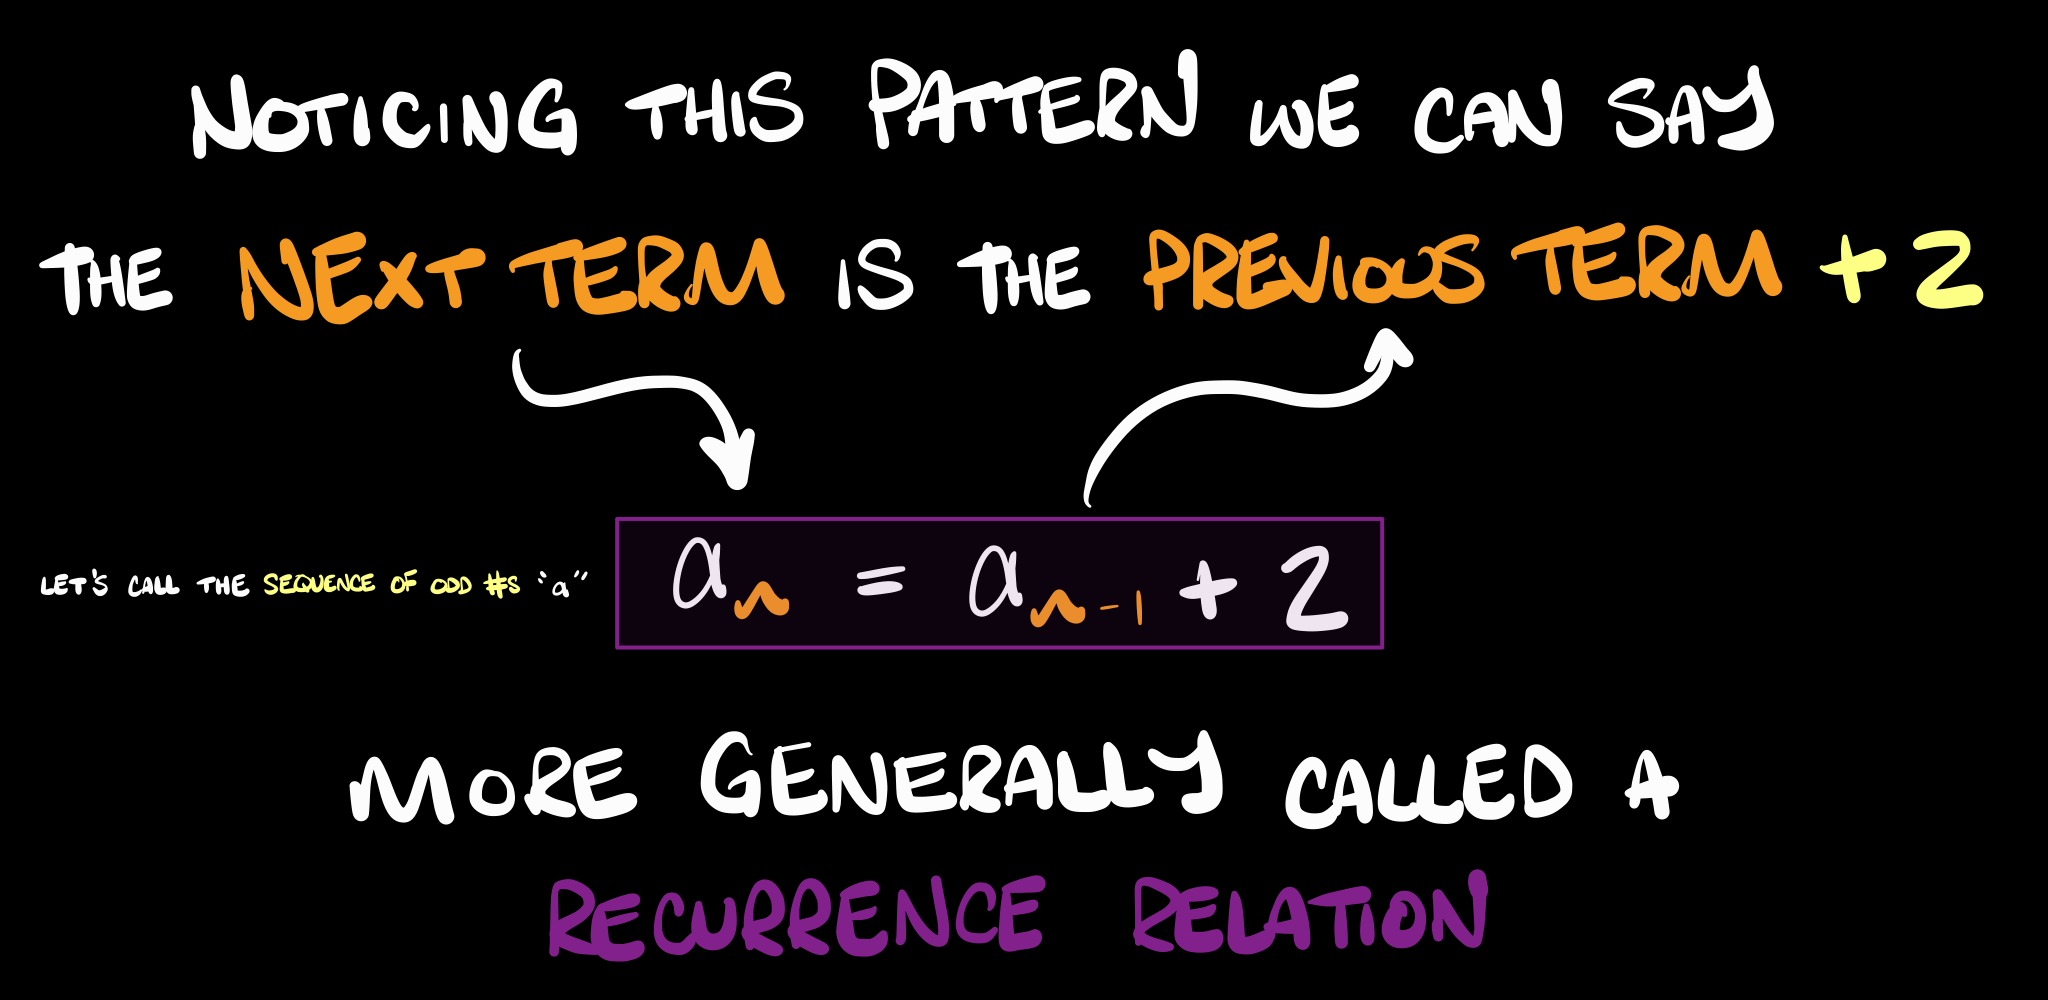 NOTICING THIS PATTERN WE CAN SAY
THE NEXT TERM IS THE PREVIOUS TERM + 2
LET'S CALL THE SEQUENCE OF ODD #S "a"
aₙ = aₙ₋₁ + 2
MORE GENERALLY CALLED A
RECURRENCE RELATION